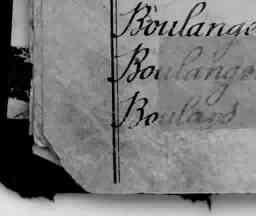 Boulange
Boulange
Boulard